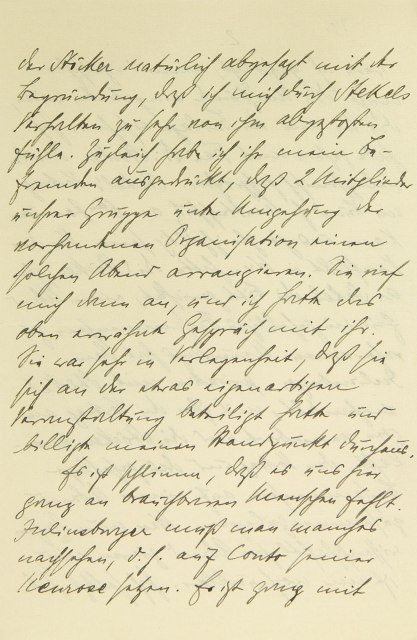 der Stöcker natürlich abgesagt mit der
Begründung, daß ich mich durch Stekels
Verhalten zu sehr von ihm abgestoßen
fühle. Zugleich habe ich ihr mein Be-
fremden ausgedrückt, daß 2 Mitglieder
unsrer Gruppe unter Umgehung der
vorhandenen Organisation einen
solchen Abend arrangieren. Sie rief
mich dann an, und ich hatte das
oben erwähnte Gespräch mit ihr.
Sie war sehr in Verlegenheit, daß sie
sich an der etwas eigenartigen
Veranstaltung beteiligt hatte und
billigte meinen Standpunkt durchaus.
Es ist schlimm, daß es uns hier
ganz an brauchbaren Menschen fehlt.
Juliusburger muß man manches
nachsehen, d. h. auf Conto seiner
Neurose setzen. Er ist ganz mit